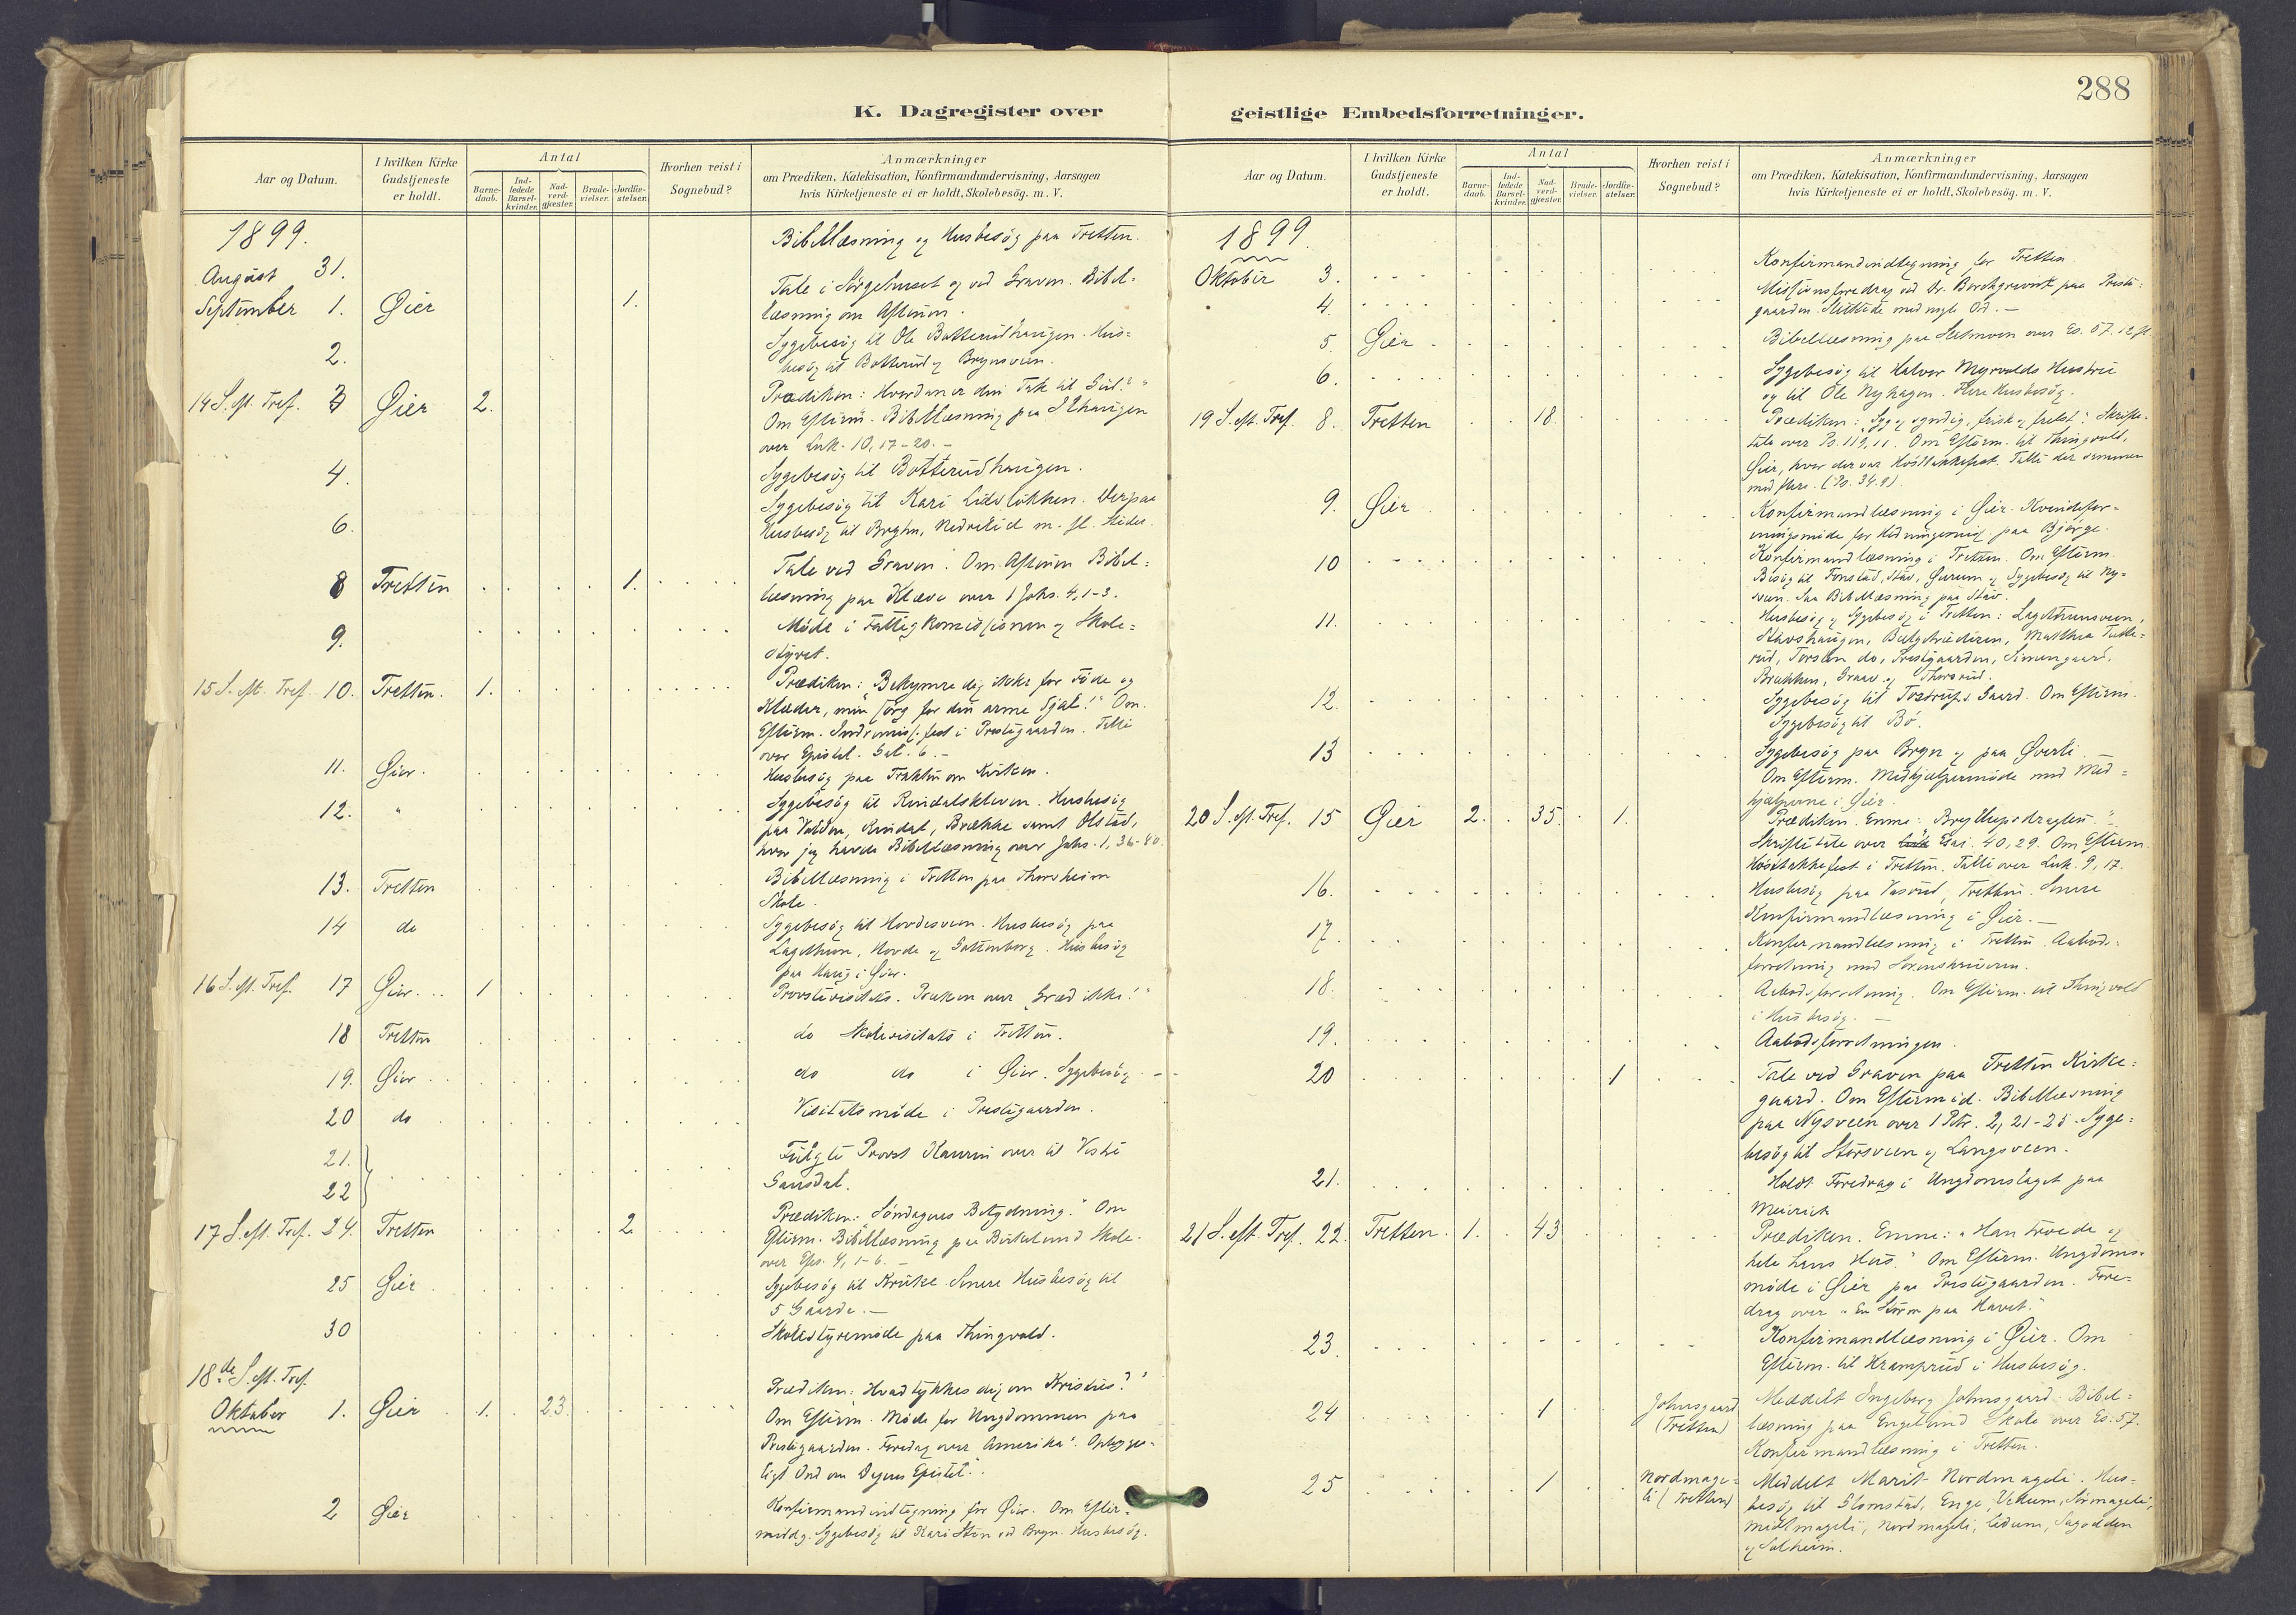 288
K. Dagregister over
geistlige Embedsforretninger.
Aar og Datum.
I hvilken Kirke
Gudstjeneste
er holdt.
Antal
Barne-
daab.
Ind-
ledede
Barsel-
kvinder.
Nad-
verd-
gjæster.
Brude-
vielser.
Jordfæ-
stelser.
Hvorhen reist i
Sognebud?
Anmærkninger
om Prædiken, Katekisation, Konfirmandundervisning, Aarsagen
hvis Kirketjeneste ei er holdt, Skolebesög. m. V.
1899.
August 31.
Bibellæsning og Husbesög paa Tretten.
September 1. Øier 1.
Tale i Sörgehuset og ved Graven. Bibel-
læsning om Aftenen.
2.
Sygebesög til Ole Botterudhaugen. Hus-
besög til Botterud og Brynsveen.
14 S. eft. Tref. 3 Øier 2.
Prædiken: Hvordan er din Tak til Gud?"
Om Efterm. Bibellæsning paa
over Luk. 10,17-20. -
4.
Sygebesög til Botterudhaugen.
6.
Sygebesög til Kari Lidelökken. Derpaa
Husbesög til Bryhn, m. fl. Steder.
8 Tretten 1.
Tale ved Graven. Om Aftenen Bibel-
læsning paa Kleve over 1 Johs. 4,1-3.
9.
Möde i Fattigkommissionen og Skole-
styret.
15 S. eft. Tref. 10. Tretten. 1.
Prædiken: "Bekymre dig ikke for Föde og
Klæder, men sörg for din arme Sjæl!" Om
Efterm. Indremis. fest i Prestegaarden. Talte
over Epistel. Gal. 6. -
11. Øier.
Husbesög paa Trakten om Kirken.
12. "
Sygebesög til Rindalskleven. Husbesög
paa Volden, Rindal, Brække samt Olstad,
hvor jeg havde Bibellæsning over Johs. 1, 36-40.
13. Tretten
Bibellæsning i Tretten paa Thorsheim
Skole.
14 do
Sygebesög til Hovdesveen. Husbesög paa
Lagethun, Hovde og Gattenborg. Husbesög
paa Haug i Øier.
16 S. eft. Tref. 17 Øier. 1
Provstevisitats. Præken over "Græd ikke!"
18 Tretten
do Skolevisitats i Tretten.
19. Øier
do do i Øier. Sygebesög. -
20 do
Visitatsmöde i Prestegaarden.
21.
22
Fulgte Provst Kaurin over til Vestre
Gausdal.
17 S. eft. Tref. 24. Tretten 2
Prædiken: "Söndagens Betydning." Om
Efterm. Bibellæsning paa Birkelund Skole.
over Efs. 4, 1-6. -
25 Øier
Sygebesög til Kruke. Senere Husbesög til
5 Gaarde. -
30
Skolestyremöde paa Thingvold.
18de S. eft. Tref.
Oktober 1. Øier 1. 23.
Prædiken: Hvad tykkes dig om Kristus?"
Om Efterm. Möde for Ungdommen paa
Prestegaarden. Foredrag over "Amerika". Opbygge-
ligt Ord om Dagens Epistel."
2 Øier
Konfirmandindtegning for Øier. Om Efter-
middg. Sygebesög til Kari Sten ved Bryn. Husbesög.
Aar og Datum.
I hvilken Kirke
Gudstjeneste
er holdt.
Antal
Barne-
daab.
Ind-
ledede
Barsel-
kvinder.
Nad-
verd-
gjæster.
Brude-
vielser.
Jordfæ-
stelser.
Hvorhen reist i
Sognebud?
Anmærkninger
om Prædiken, Katekisation, Konfirmandundervisning, Aarsagen
hvis Kirketjeneste ei er holdt, Skolebesög. m. V.
1899.
Oktober 3.
Konfirmandindtegning for Tretten.
4.
Missionsforedrag ved Hr. Borchgrevink paa Preste-
gaarden. Sluttede med nogle Ord. -
5. Øier
Bibellæsning paa over Es. 57.
6.
Sygebesög til Halvor Myrvolds Hustru
og til Ole Nyhagen. Flere Husbesög.
19 S. eft. Tref. 8. Tretten 18.
Prædiken: "Syg og syndig, frisk og frelst." Skrifte-
tale over Ps. 119,11. Om Efterm. til Thingvold,
Øier, hvor der var Hösttakkefest. Talte der sammen
med flere. (Ps. 34.9).
9. Øier
Konfirmandlæsning i Øier. Kvindefor-
eningsmöde for Hedningemis. paa Bjørge.
10
Konfirmandlæsning i Tretten. Om Efterm.
Besög til Fonstad, Stav, Ourum og Sygebesög til Ny-
sveen. Saa Bibellæsning paa Stav.
11.
Husbesög og Sygebesög i Tretten: Lagethunsveen,
Stavshaugen, Mathea
rud, Torsten do, Prestgaarden, Simengaard,
Brækken, Graav og Thorsrud.
12.
Sygebesög til Gaard. Om Efterm.
Sygebesög til Bö.
13
Sygebesög paa Bryn og paa Øverli. -
Om Efterm. Medhjælpermöde med Med-
hjælperne i Øier.
20 S. eft. Tref. 15 Øier 2. 35. 1.
Prædiken. Emne: "Bryllupsdragten."
Skriftetale over Esai. 40,29. Om Efterm.
Hösttakkefest i Tretten. Talte over Luk. 9,17.
16.
Husbesög paa Vasrud, Tretten. Senere
Konfirmandlæsning i Øier. -
17.
Konfirmandlæsning i Tretten. Aabods-
forretning med Sorenskriveren.
18.
Aabodsforretning. Om Efterm. til Thingvold
i Husbesög. -
19.
Aabodsforretningen.
20 1
Tale ved Graven paa Tretten Kirke-
gaard. Om Eftermid. Bibellæsning
paa Nysveen over 1 Petr. 2, 21-25. Syge-
besög til Storsveen og Langsveen.
21.
Holdt Foredrag i Ungdomslaget paa
21 S. eft. Tref. 22. Tretten. 1. 43
Prædiken. Emne: "Han troede og
hele hans Hus." Om Efterm. Ungdoms-
möde i Øier paa Prestegaarden. Fore-
drag over "En Storm paa Havet."
23.
Konfirmandlæsning i Øier. Om
Efterm. til Kramprud i Husbesög.
24 1 Johnsgaard
(Tretten)
Meddelt Ingeborg Johnsgaard. Bibel-
læsning paa Engelund Skole over Es. 57.
Konfirmandlæsning i Tretten.
25 1 Nordmage-
li (Tretten)
Meddelt Marit Nordmageli. Hus-
besög til Glomstad, Enge, Vedum, Sørmageli,
Midtmageli, Nordmageli, Lidum, Sagodden
og Solheim.